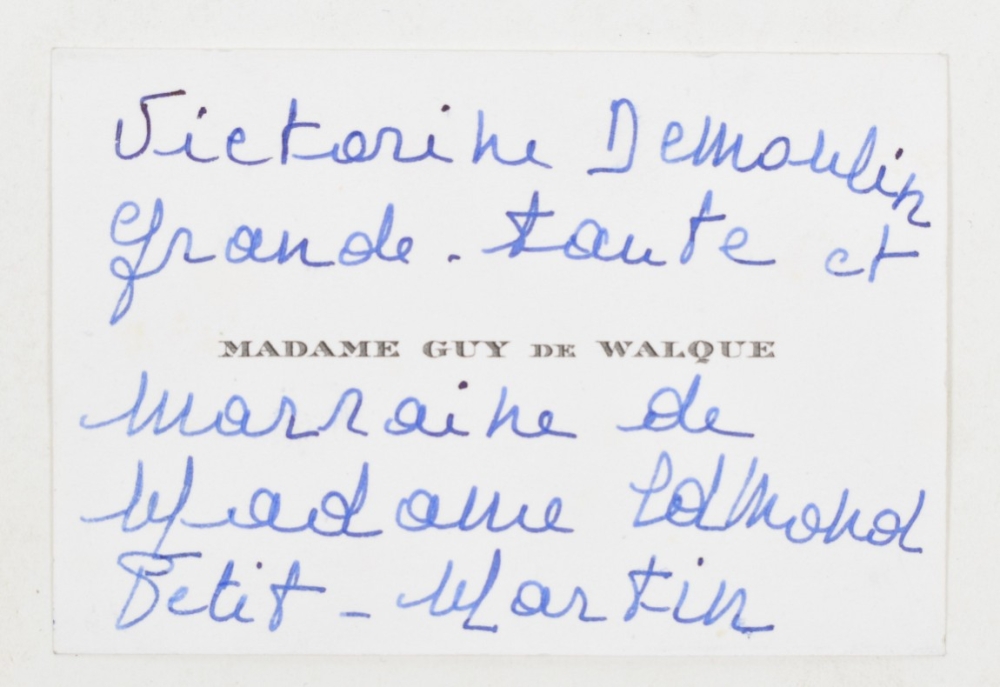 Victorine Demoulin
Grande-tante et
MADAME GUY DE WALQUE
Marraine de
Madame Edmond
Petit-Martin